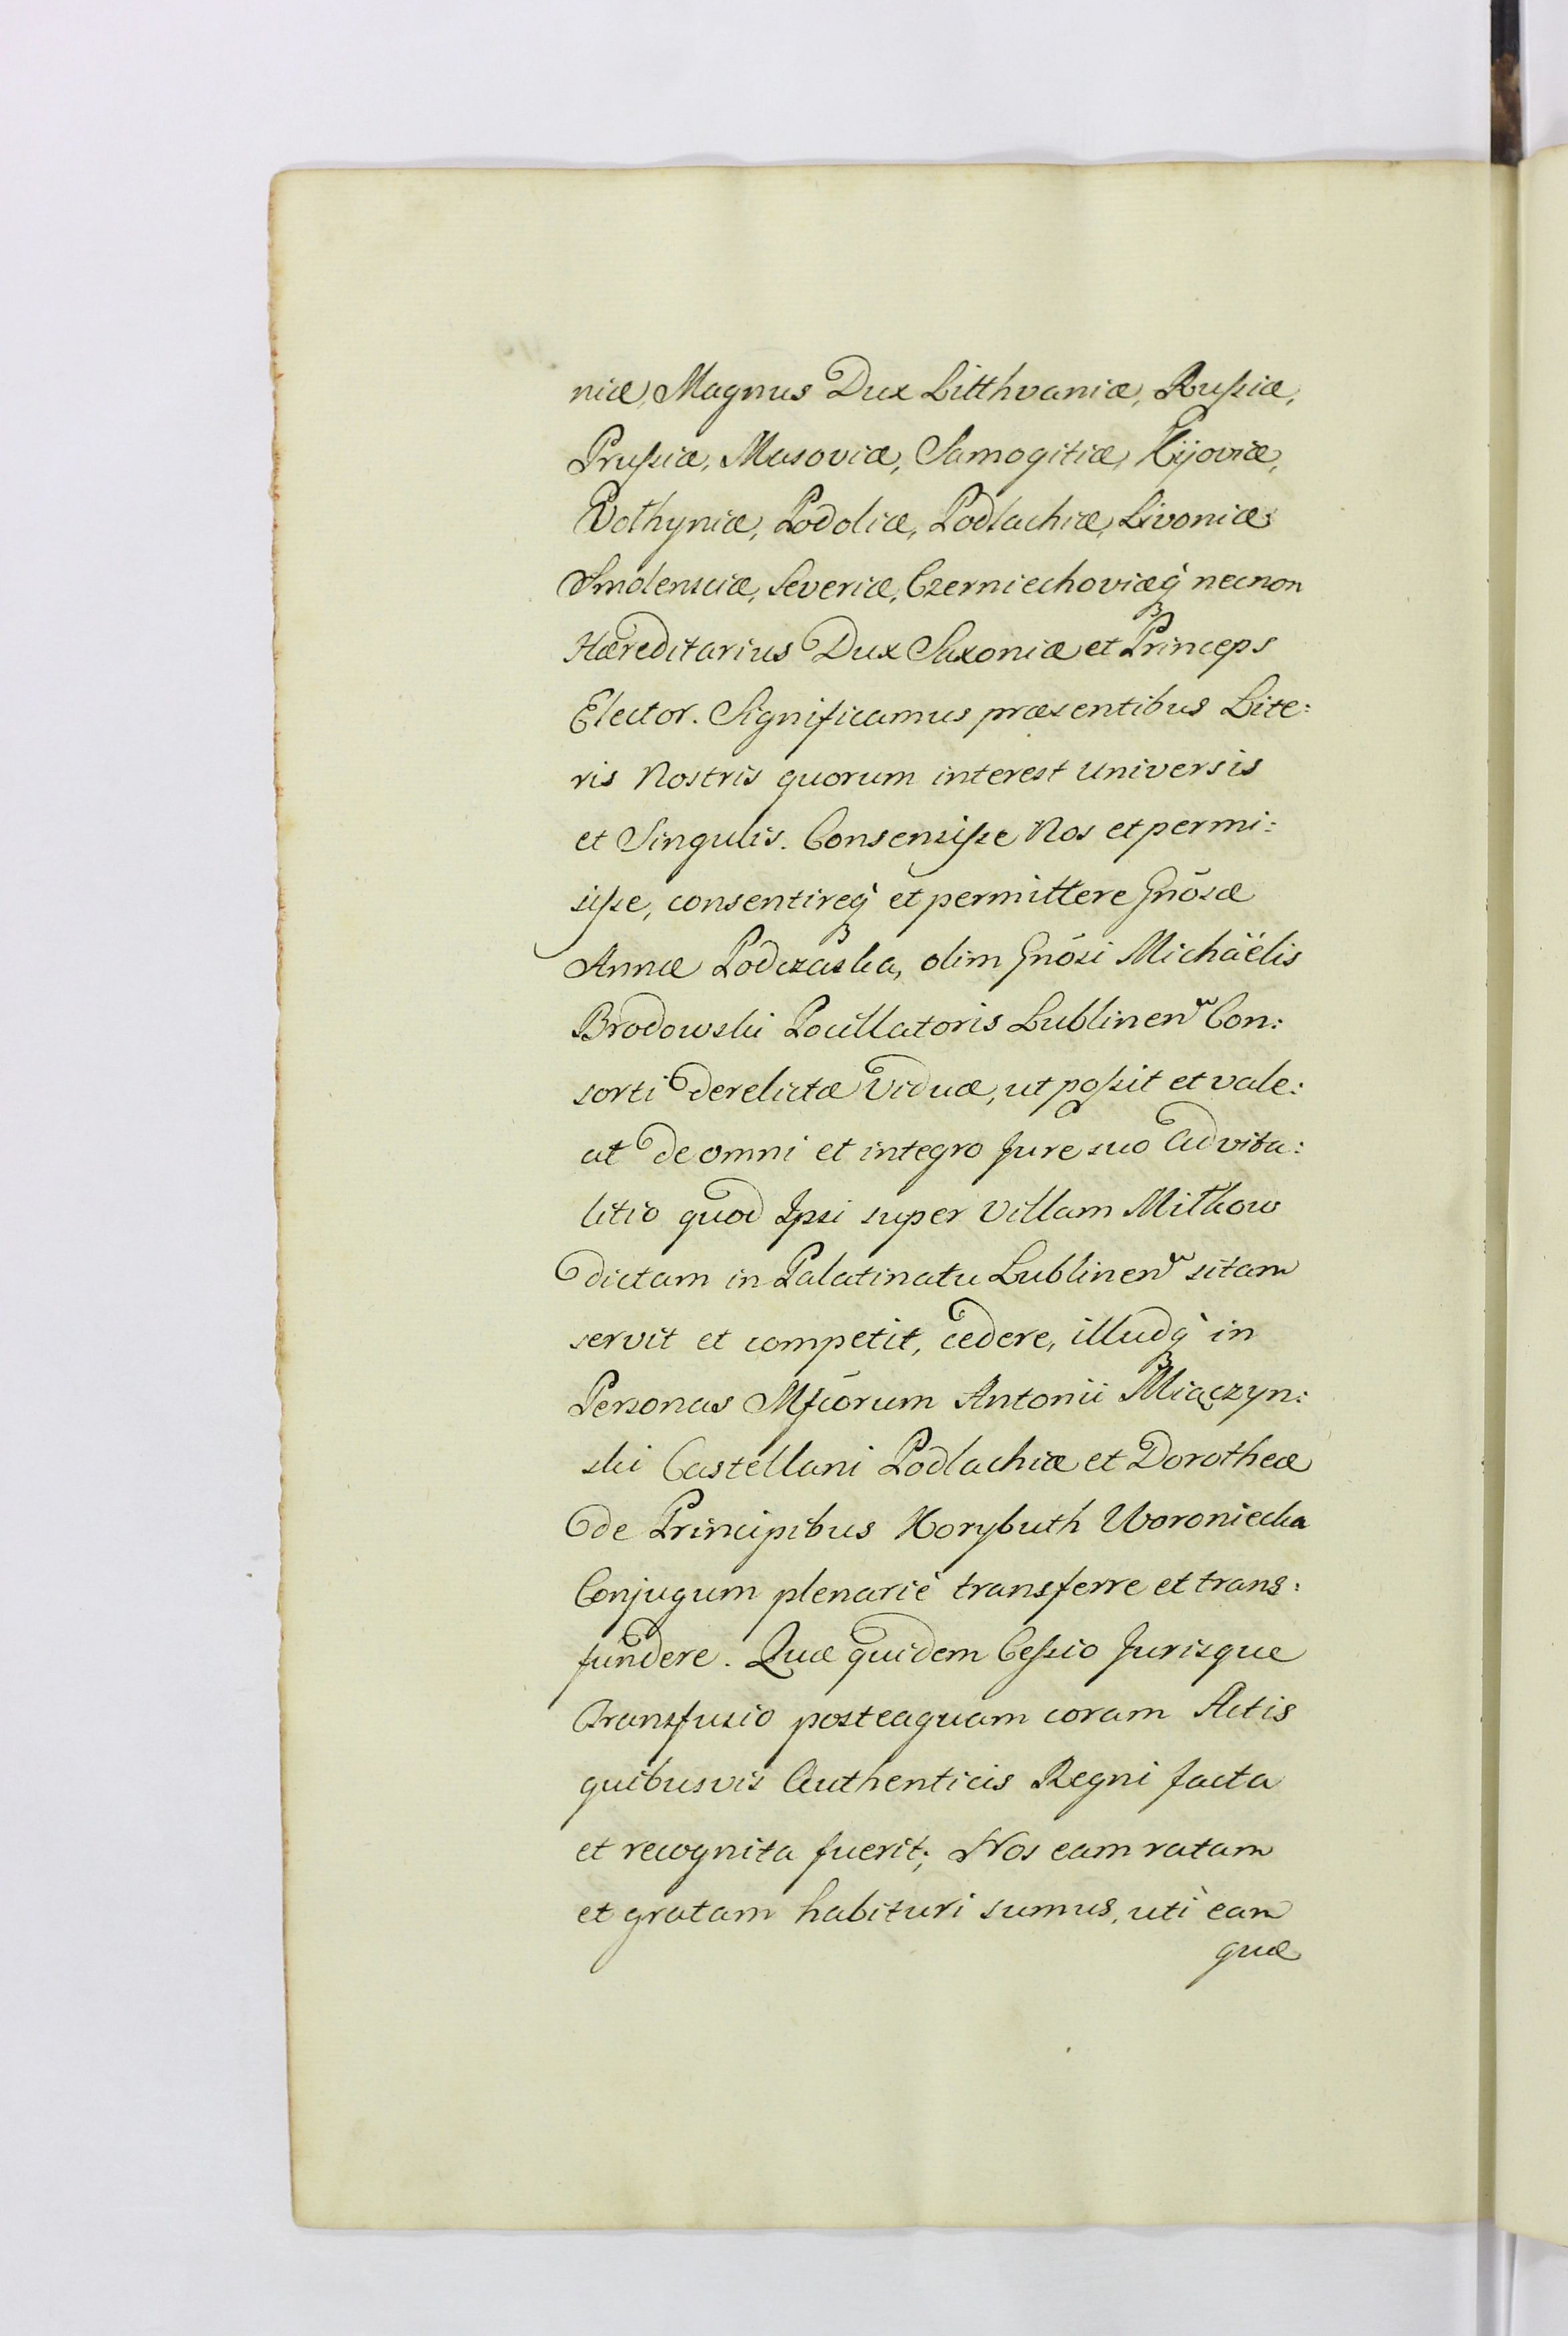 niæ, Magnus Dux Litthvaniæ, Rußiæ,
Prußiæ, Masoviæ, Samogitiæ, Kijoviæ,
Volhyniæ, Podoliæ, Podlachiæ, Livoniæ
Smolensciæ, Severiæ, Czerniechoviæq̀ necnon
Hæreditarius Dux Saxoniæ et Princeps
Elector. Significamus præsentibus Lite:
ris Nostris quorum interest universis
et Singulis. Consensiße Nos et permi:
siße, consentireq̀ et permittere Gnōsæ
Annæ Podczaska, olim Gnōsi Michäelis
Brodowski Pocillatoris Lublinen̄ Con:
sorti derelictæ Viduæ, ut poßit et vale:
at de omni et integro Jure suo Advita:
litio quod Ipsi super Villam Miłkow
dictam in Palatinatu Lublinen̄ sitam
servit et competit, cedere, illudq̀ in
Personas Mfcōrum Antonii Miączyn:
ski Castellani Podlachiæ et Dorotheæ
de Principibus Korybuth Woroniecka
Conjugum plenariè transferre et trans:
fundere. Quæ quidem Ceßio Jurisque
transfusio posteaquam coram Actis
quibusvis Authenticis Regni facta
et recognita fuerit; Nos eam ratam
et gratam habituri sumus, utì eam
quæ